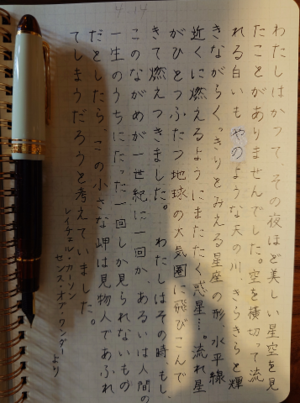 わたしはかつて その夜ほど美しい星空を見
たことがありませんでした。空を横切って流
れる白いもやのような天の川、きらきらと輝
きながらくっきりとみえる星座の形、水平線
近くに燃えるようにまたたく惑星…。流れ星
がひとつふたつ地球の大気圏に飛びこんで
きて燃えつきました。 わたしはその時もし、
このながめが一世紀に一回か、あるいは人間の
一生のうちにたった一回しか見られないもの
だとしたら、この小さな岬は見物人であふれ
てしまうだろうと考えていました。
レイチェル・カーソン
センス・オブ・ワンダー より